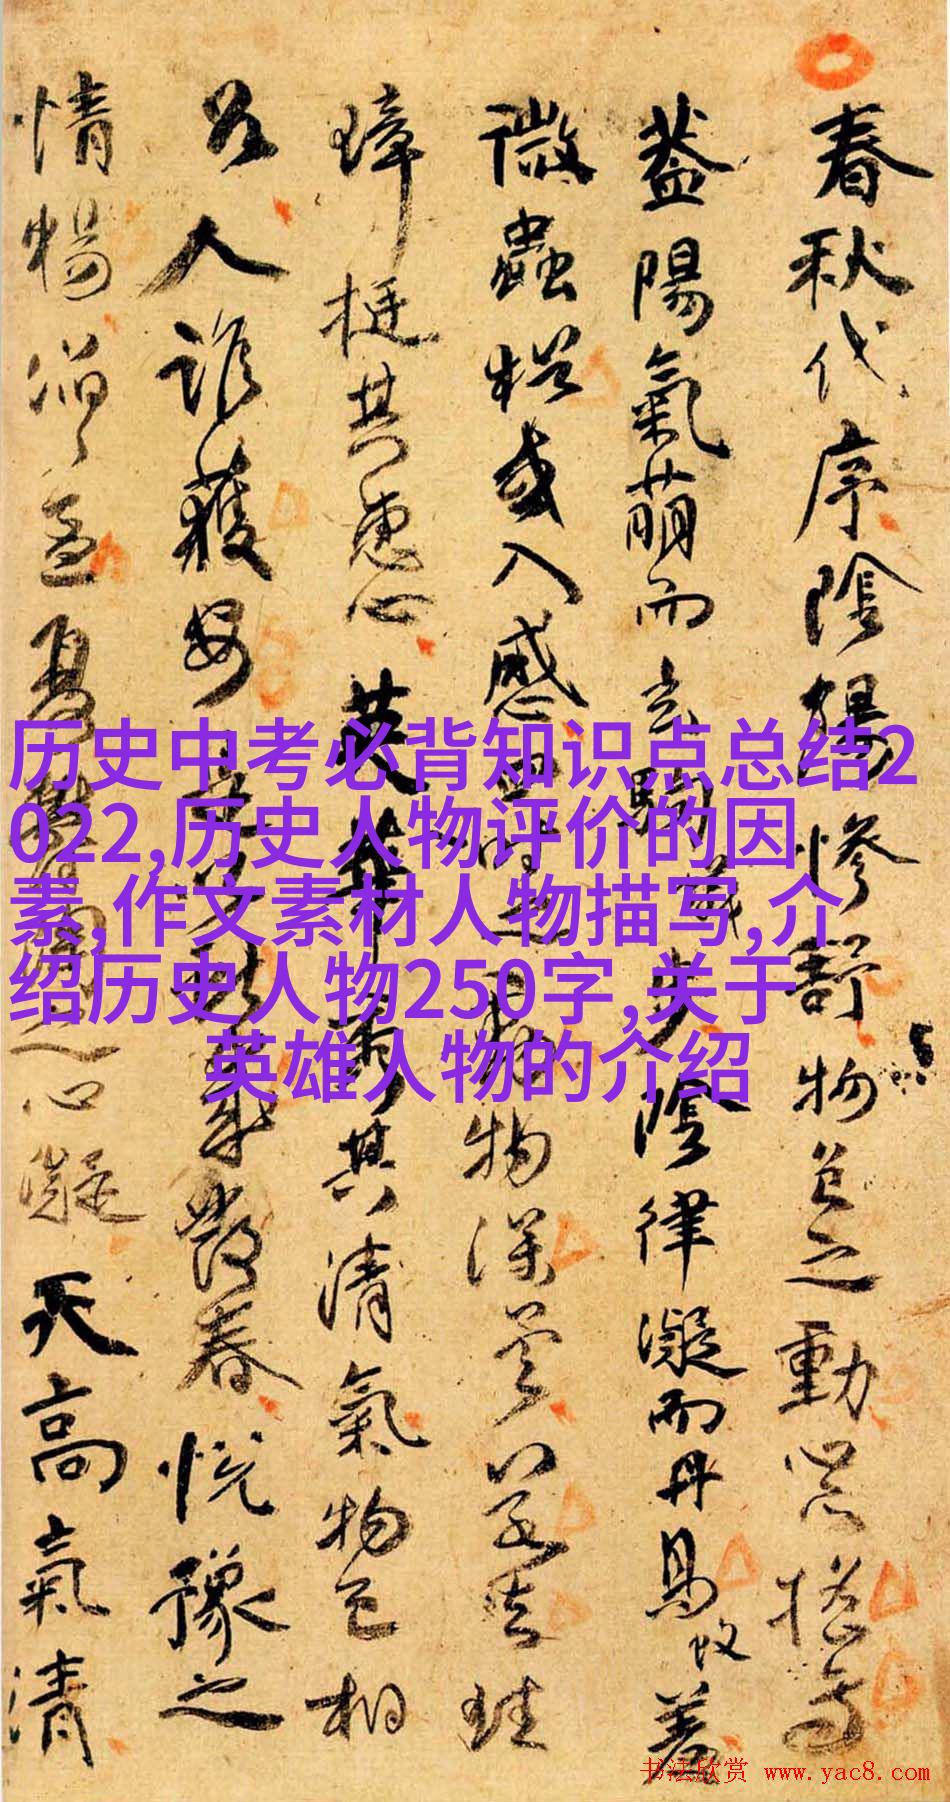 春秋代序陰陽慘舒物色之動心亦搖焉
蓋陽氣萌而玄駒步陰律凝而丹鳥羞
微蟲猶或入感四時之動物深矣若夫珪
璋挺其惠心英華秀其清氣物色相
召人誰獲安是以獻歲發春悅豫之
情暢滔滔孟夏鬱陶之心凝天高氣清
历史中考必背知识点总结2
022,历史人物评价的因
素,作文素材人物描写,介
绍历史人物250字,关于
英雄人物的介绍
书法欣赏 www.yac8.com